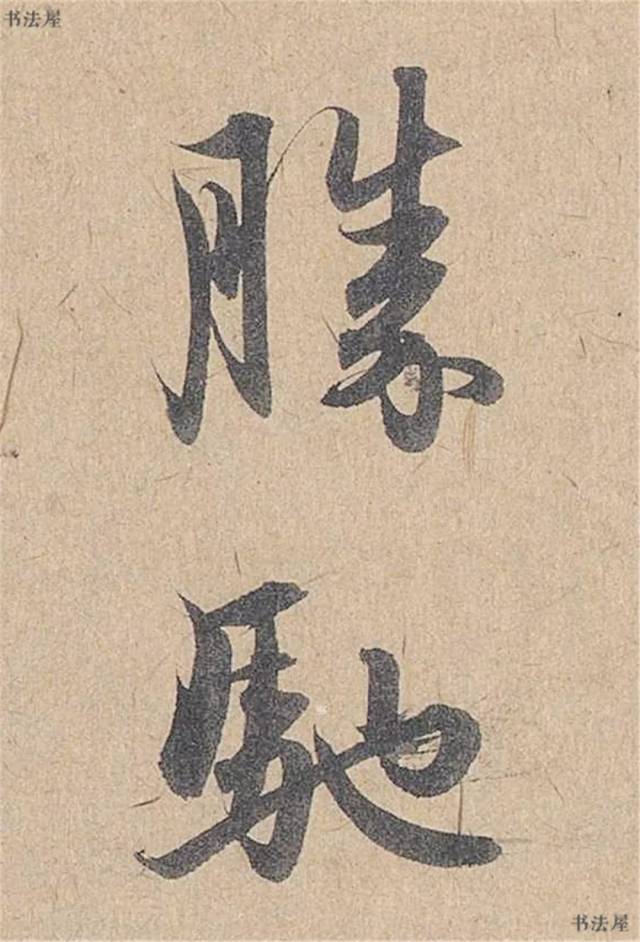 书法屋
勝
馳
书法屋